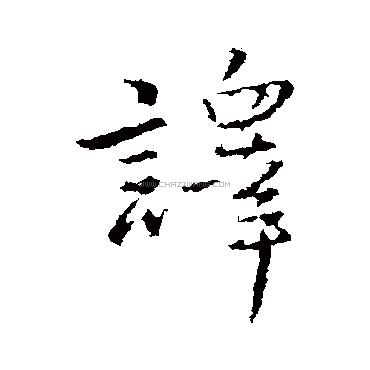 譯
WWW.CHAZIDIAN.COM